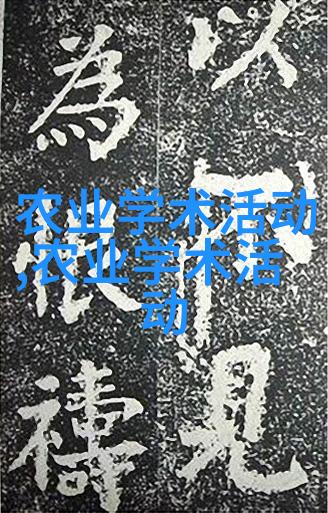 农业学术活动
,农业学术活
动
以 見
為 恨 禱